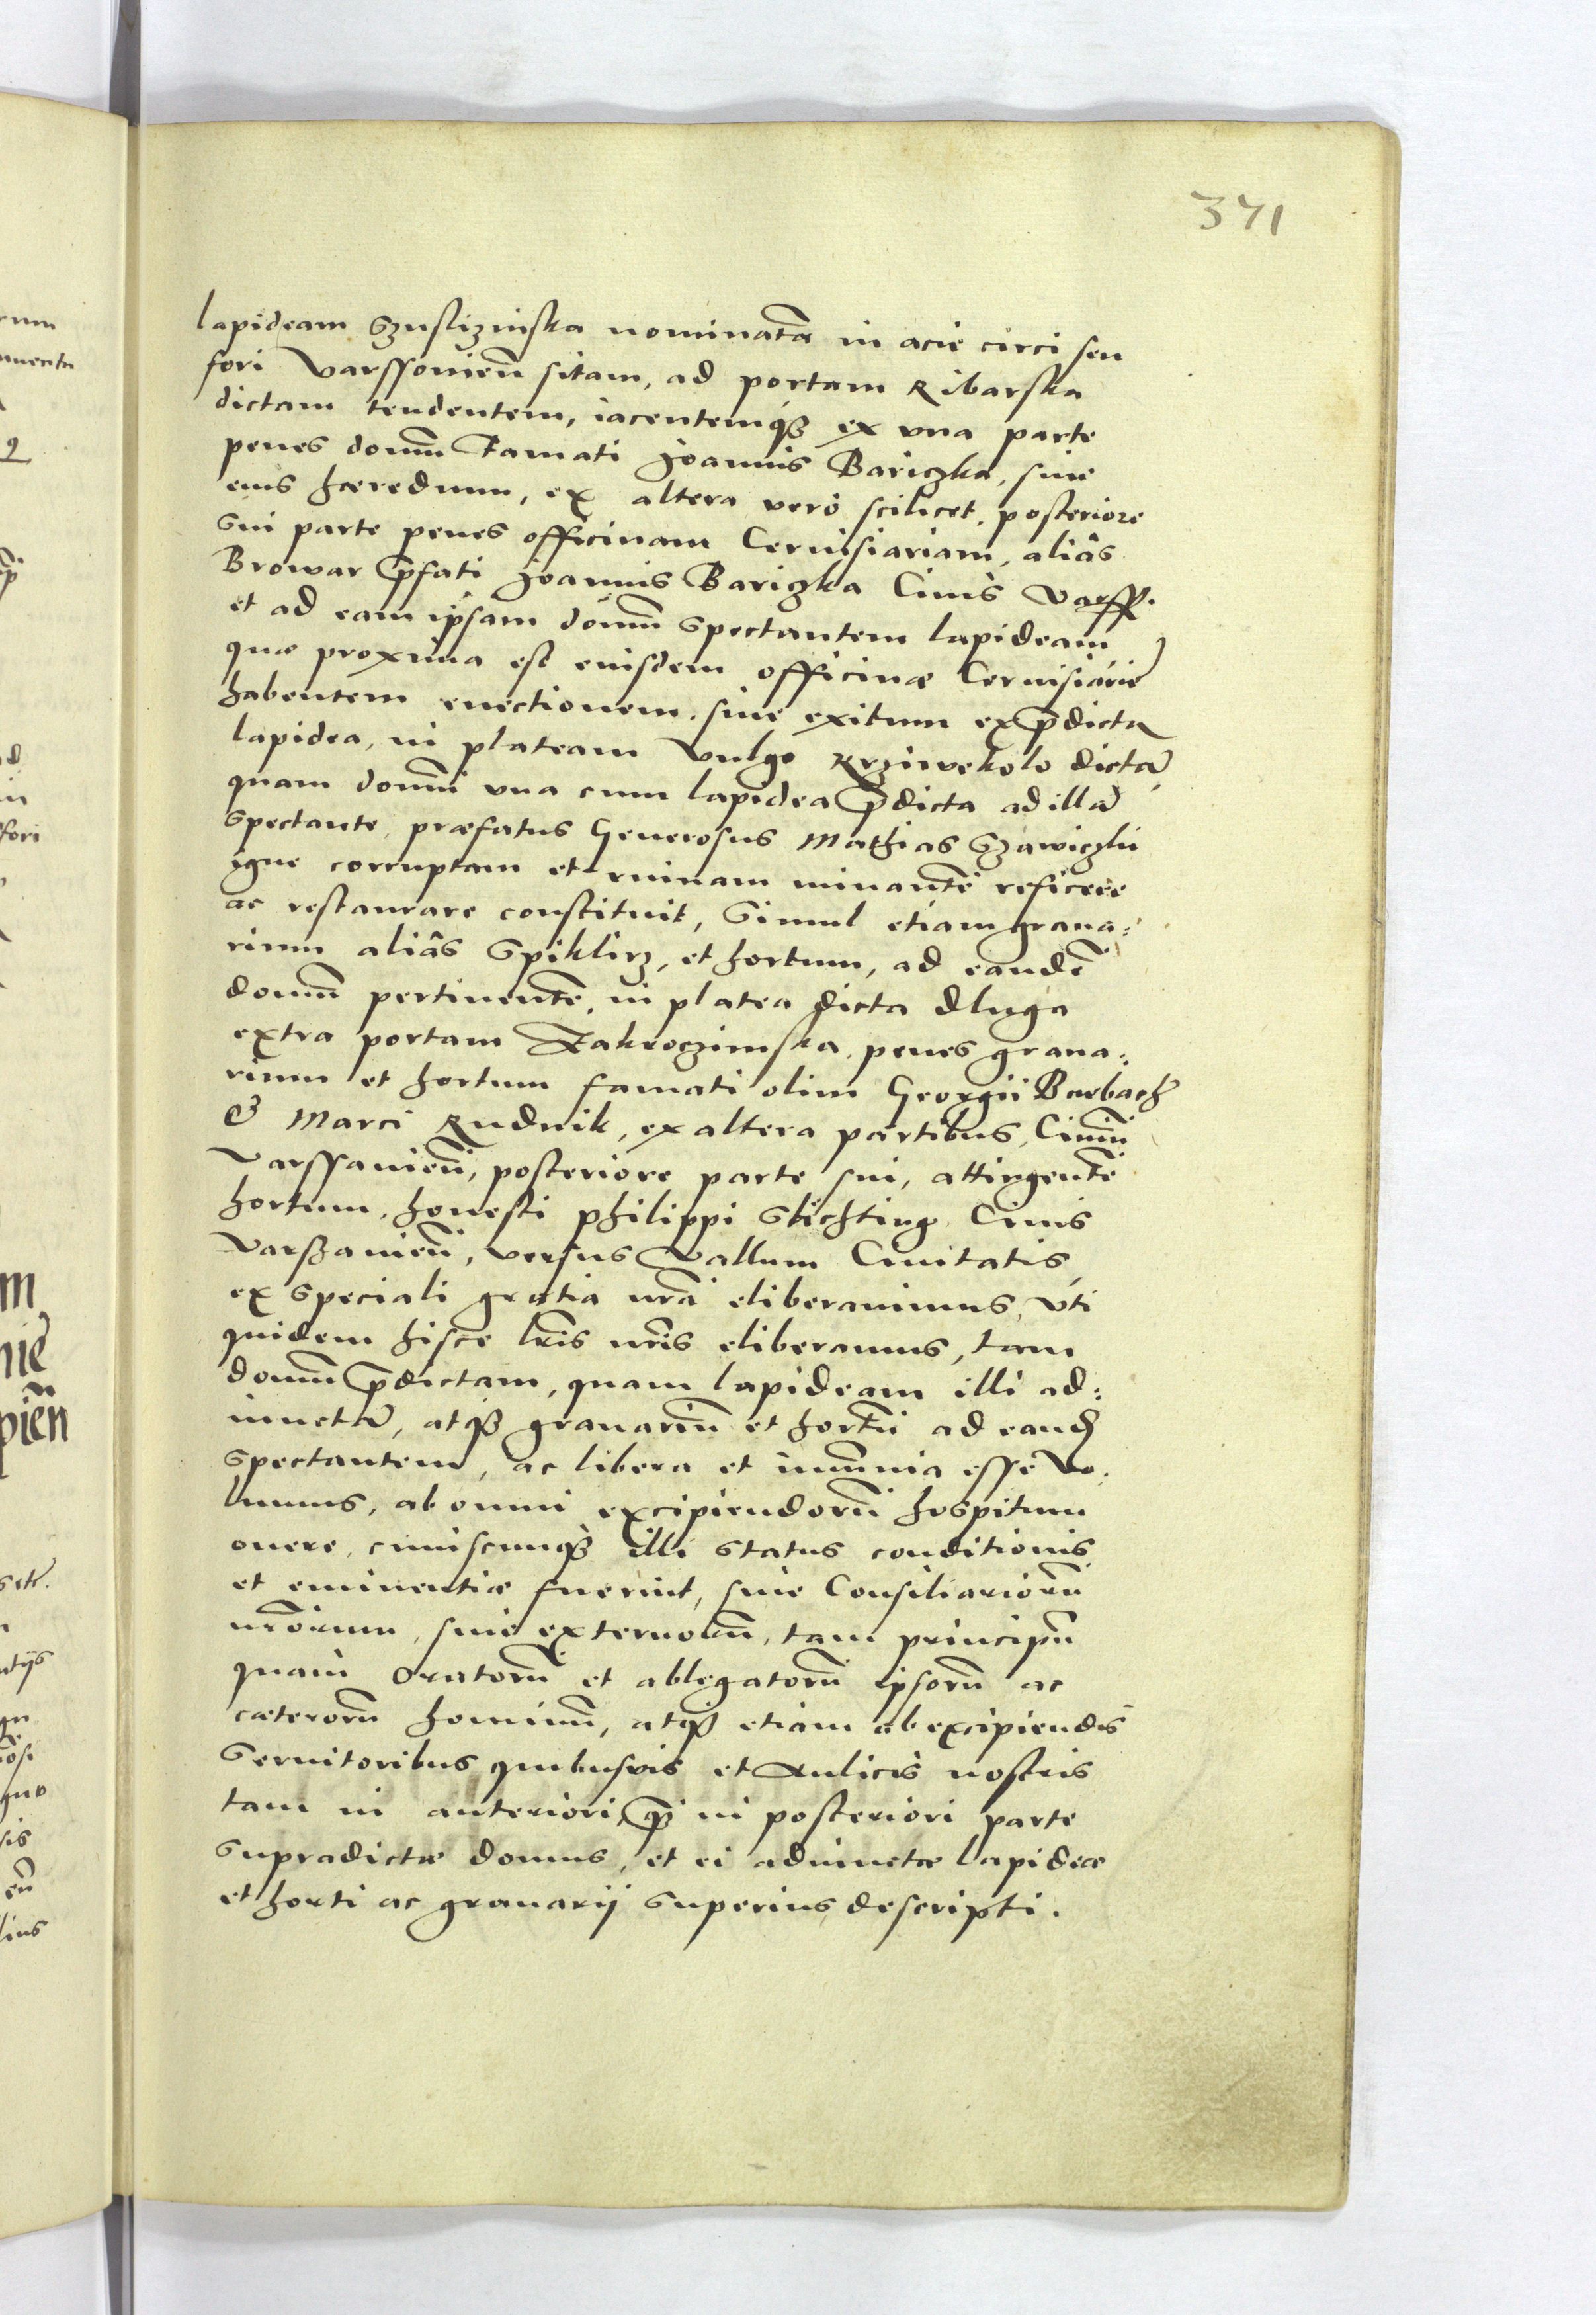 371
lapideam Szuslizinska nominatã in acie circi seu
fori Varssovien̄ sitam, ad portam Ribarska
dictam tendentem, iacentemq₃ ex una parte
penes domū Famati Joannis Bariczka, siue
eius hæredum, ex altera verò scilicet, posteriore
sui parte penes officinam Ceruisiariam, aliàs
Browar p̄fati Joannis Bariczka Ciuis Varss.
et ad eam ipsam domū spectantem lapideam
quæ proxima est eiusdem officinæ Ceruisiarie
habentem euectionem, siue exitum ex p̄dicta
lapidea, in plateam vulgo Krziwekolo dictã,
quam domū una cum lapidea p̄dicta ad illã
spectante, præfatus Generosus Mathias
igne corruptam et ruinam minantē reficere
ac restaurare constituit, Simul etiam grana:
rium aliàs Spiklirz, et hortum, ad eandē
domū pertinentē, in platea dicta Dluga
extra portam Zakroczimska, penes grana:
rium et hortum famati olim Georgii Burbach
& Marci Rudnik, ex altera partibus, Ciuiū
Varssauien̄, posteriore parte sui, attingentē
hortum, honesti Philippi Stichting Ciuis
Varszauien̄, versus Vallum Ciuitatis,
ex speciali gratia nrã eliberauimus, vti
quidem hisce lris nris eliberamus, tam
domū p̄dictam, quam lapideam illi ad:
iunctã, atq₃ granariū et hortū ad eand
spectantem, ac libera et imūnia esse vo:
lumus, ab omni excipiendorū hospitum
onere, cuiuscunq₃ illi status conditionis
et eminentiæ fuerint, siue Consiliariorū
nrōrum, siue externorū, tam principū
quam Oratorū et ablegatorū ipsorū ac
cæterorū hominū, atq₃ etiam ab excipiendis
Seruitoribus quibusvis et Aulicis nostris
tam in anteriori, q̄ in posteriori parte
supradictæ domus, et ei adiunctæ lapideæ
et horti ac granarij superius descripti.